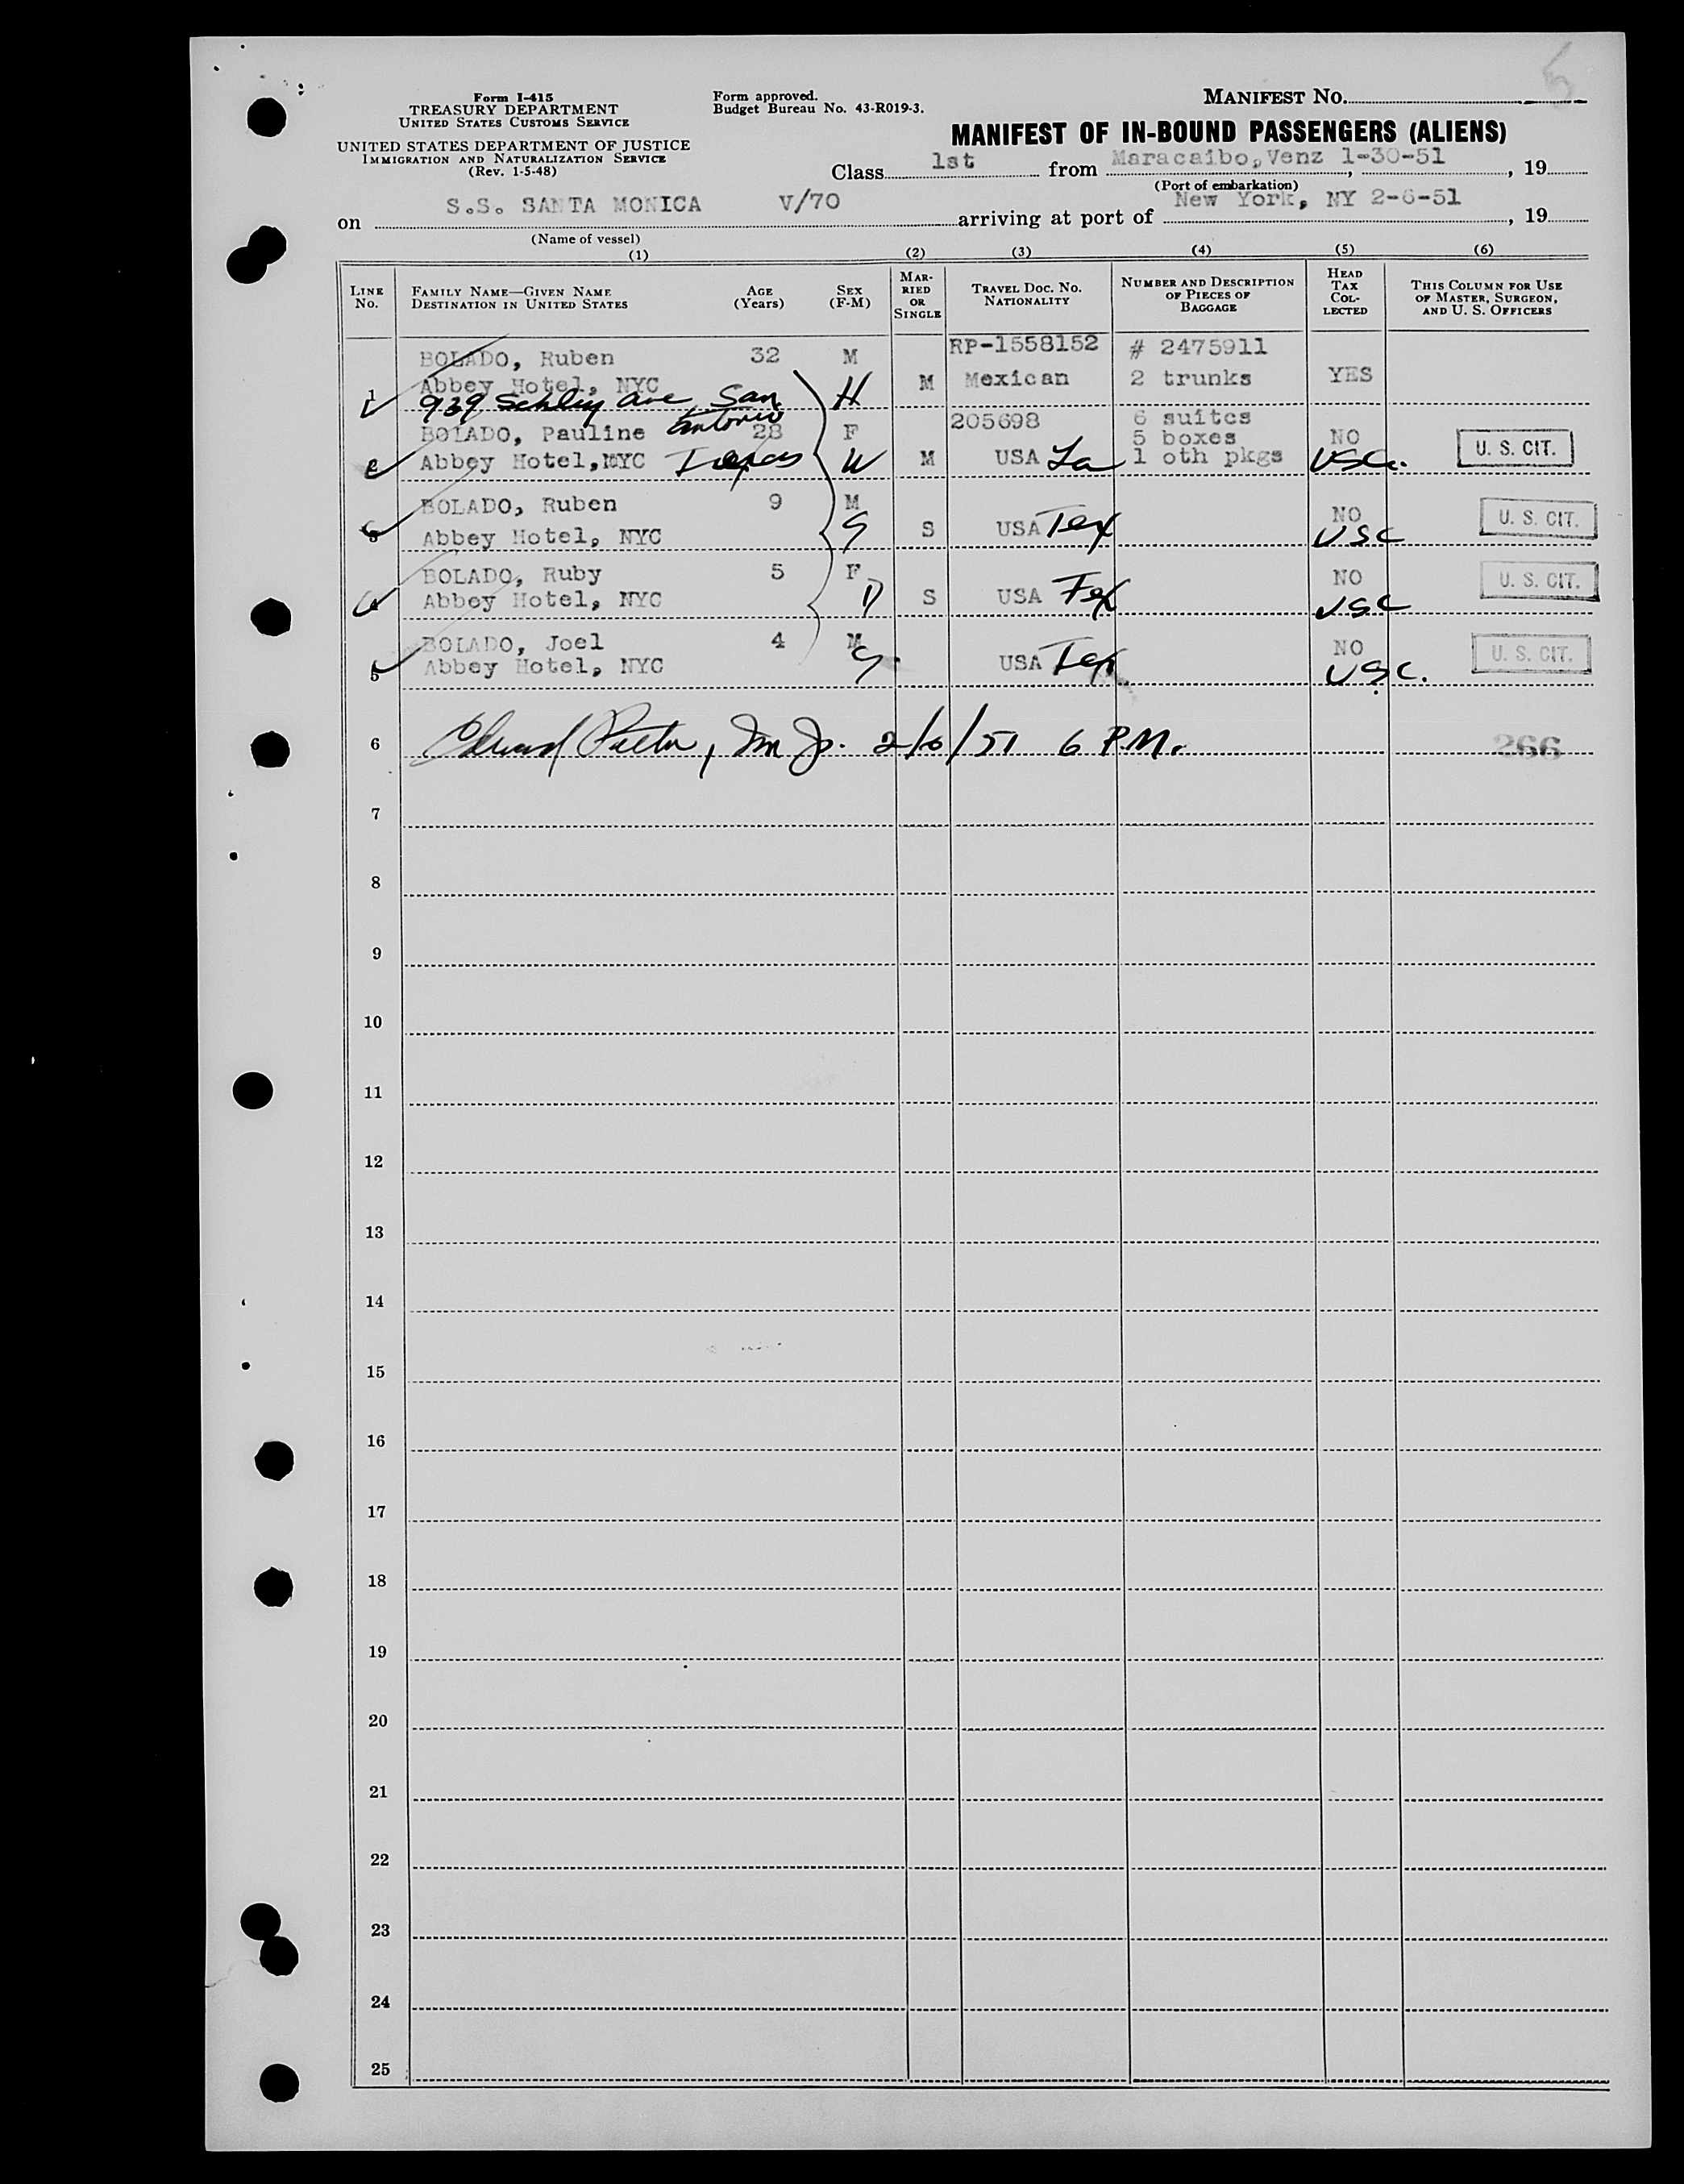 Form I-415
TREASURY DEPARTMENT
UNITED STATES CUSTOMS SERVICE
UNITED STATES DEPARTMENT OF JUSTICE
IMMIGRATION AND NATURALIZATION SERVICE
(Rev. 1-5-48)
Form approved.
Budget Bureau No. 43-R019-3.
MANIFEST No.
MANIFEST OF IN-BOUND PASSENGERS (ALIENS)
Class 1st from Maracaibo, Venz 1-30-51, 19
(Port of embarkation)
on S.S. SANTA MONICA V/70 arriving at port of New York, NY 2-6-51, 19
(Name of vessel)
(1) (2) (3) (4) (5) (6)
LINE No. FAMILY NAME—GIVEN NAME DESTINATION IN UNITED STATES AGE (Years) SEX (F-M) MARRIED OR SINGLE TRAVEL DOC. No. NATIONALITY NUMBER AND DESCRIPTION OF PIECES OF BAGGAGE HEAD TAX COLLECTED THIS COLUMN FOR USE OF MASTER, SURGEON, AND U. S. OFFICERS
BOLADO, Ruben 32 M RP-1558152 # 2475911
1 Abbey Hotel, NYC M Mexican 2 trunks YES
939 Schley Ave San Antonio H
BOLADO, Pauline 28 F 205698 6 suitcs
5 boxes NO
2 Abbey Hotel, NYC Texas W M USA La 1 oth pkgs USC. U. S. CIT.
BOLADO, Ruben 9 M NO U. S. CIT.
3 Abbey Hotel, NYC S S USA Tex USC
BOLADO, Ruby 5 F NO U. S. CIT.
4 Abbey Hotel, NYC D S USA Tex USC
BOLADO, Joel 4 M NO U. S. CIT.
5 Abbey Hotel, NYC S USA Tex USC.
6 2/6/51 6 P.M. 266
7
8
9
10
11
12
13
14
15
16
17
18
19
20
21
22
23
24
25